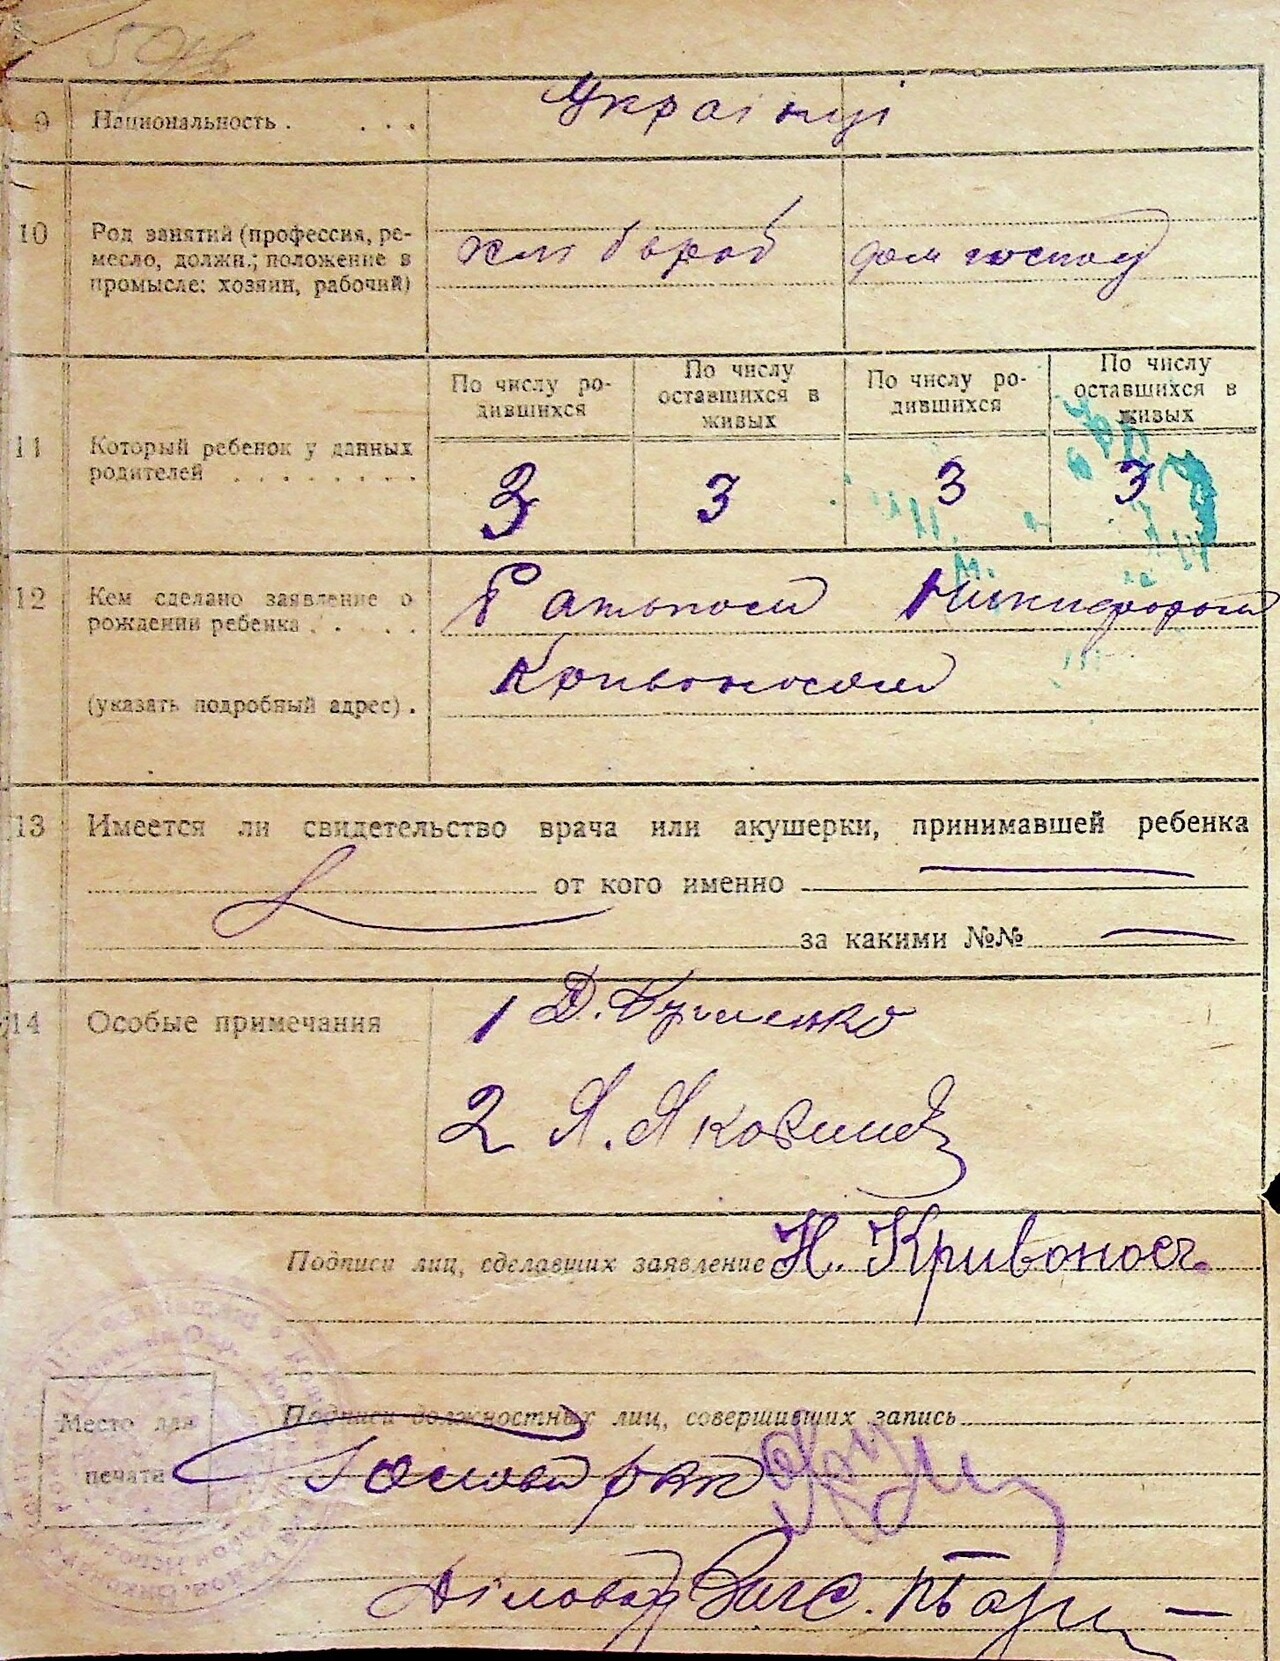 9 Национальность . . . . Українці
10 Род занятий (профессия, ре-
месло, должн.; положение в
промысле: хозяин, рабочий)
хлібороб дом господ
По числу ро-
дившихся
По числу
оставшихся в
живых
По числу ро-
дившихся
По числу
оставшихся в
живых
11 Который ребенок у данных
родителей . . . . . . . .
3 3 3 3
12 Кем сделано заявление о
рождении ребенка . . . .
(указать подробный адрес) .
Никифором
Кривоносом
13 Имеется ли свидетельство врача или акушерки, принимавшей ребенка
от кого именно
за какими №№
14 Особые примечания
1 Д.
2 Я.
Подписи лиц, сделавших заявление Н. Кривонос.
Подписи должностных лиц, совершивших запись
Место для
печати
Голова
Діловод Загс.